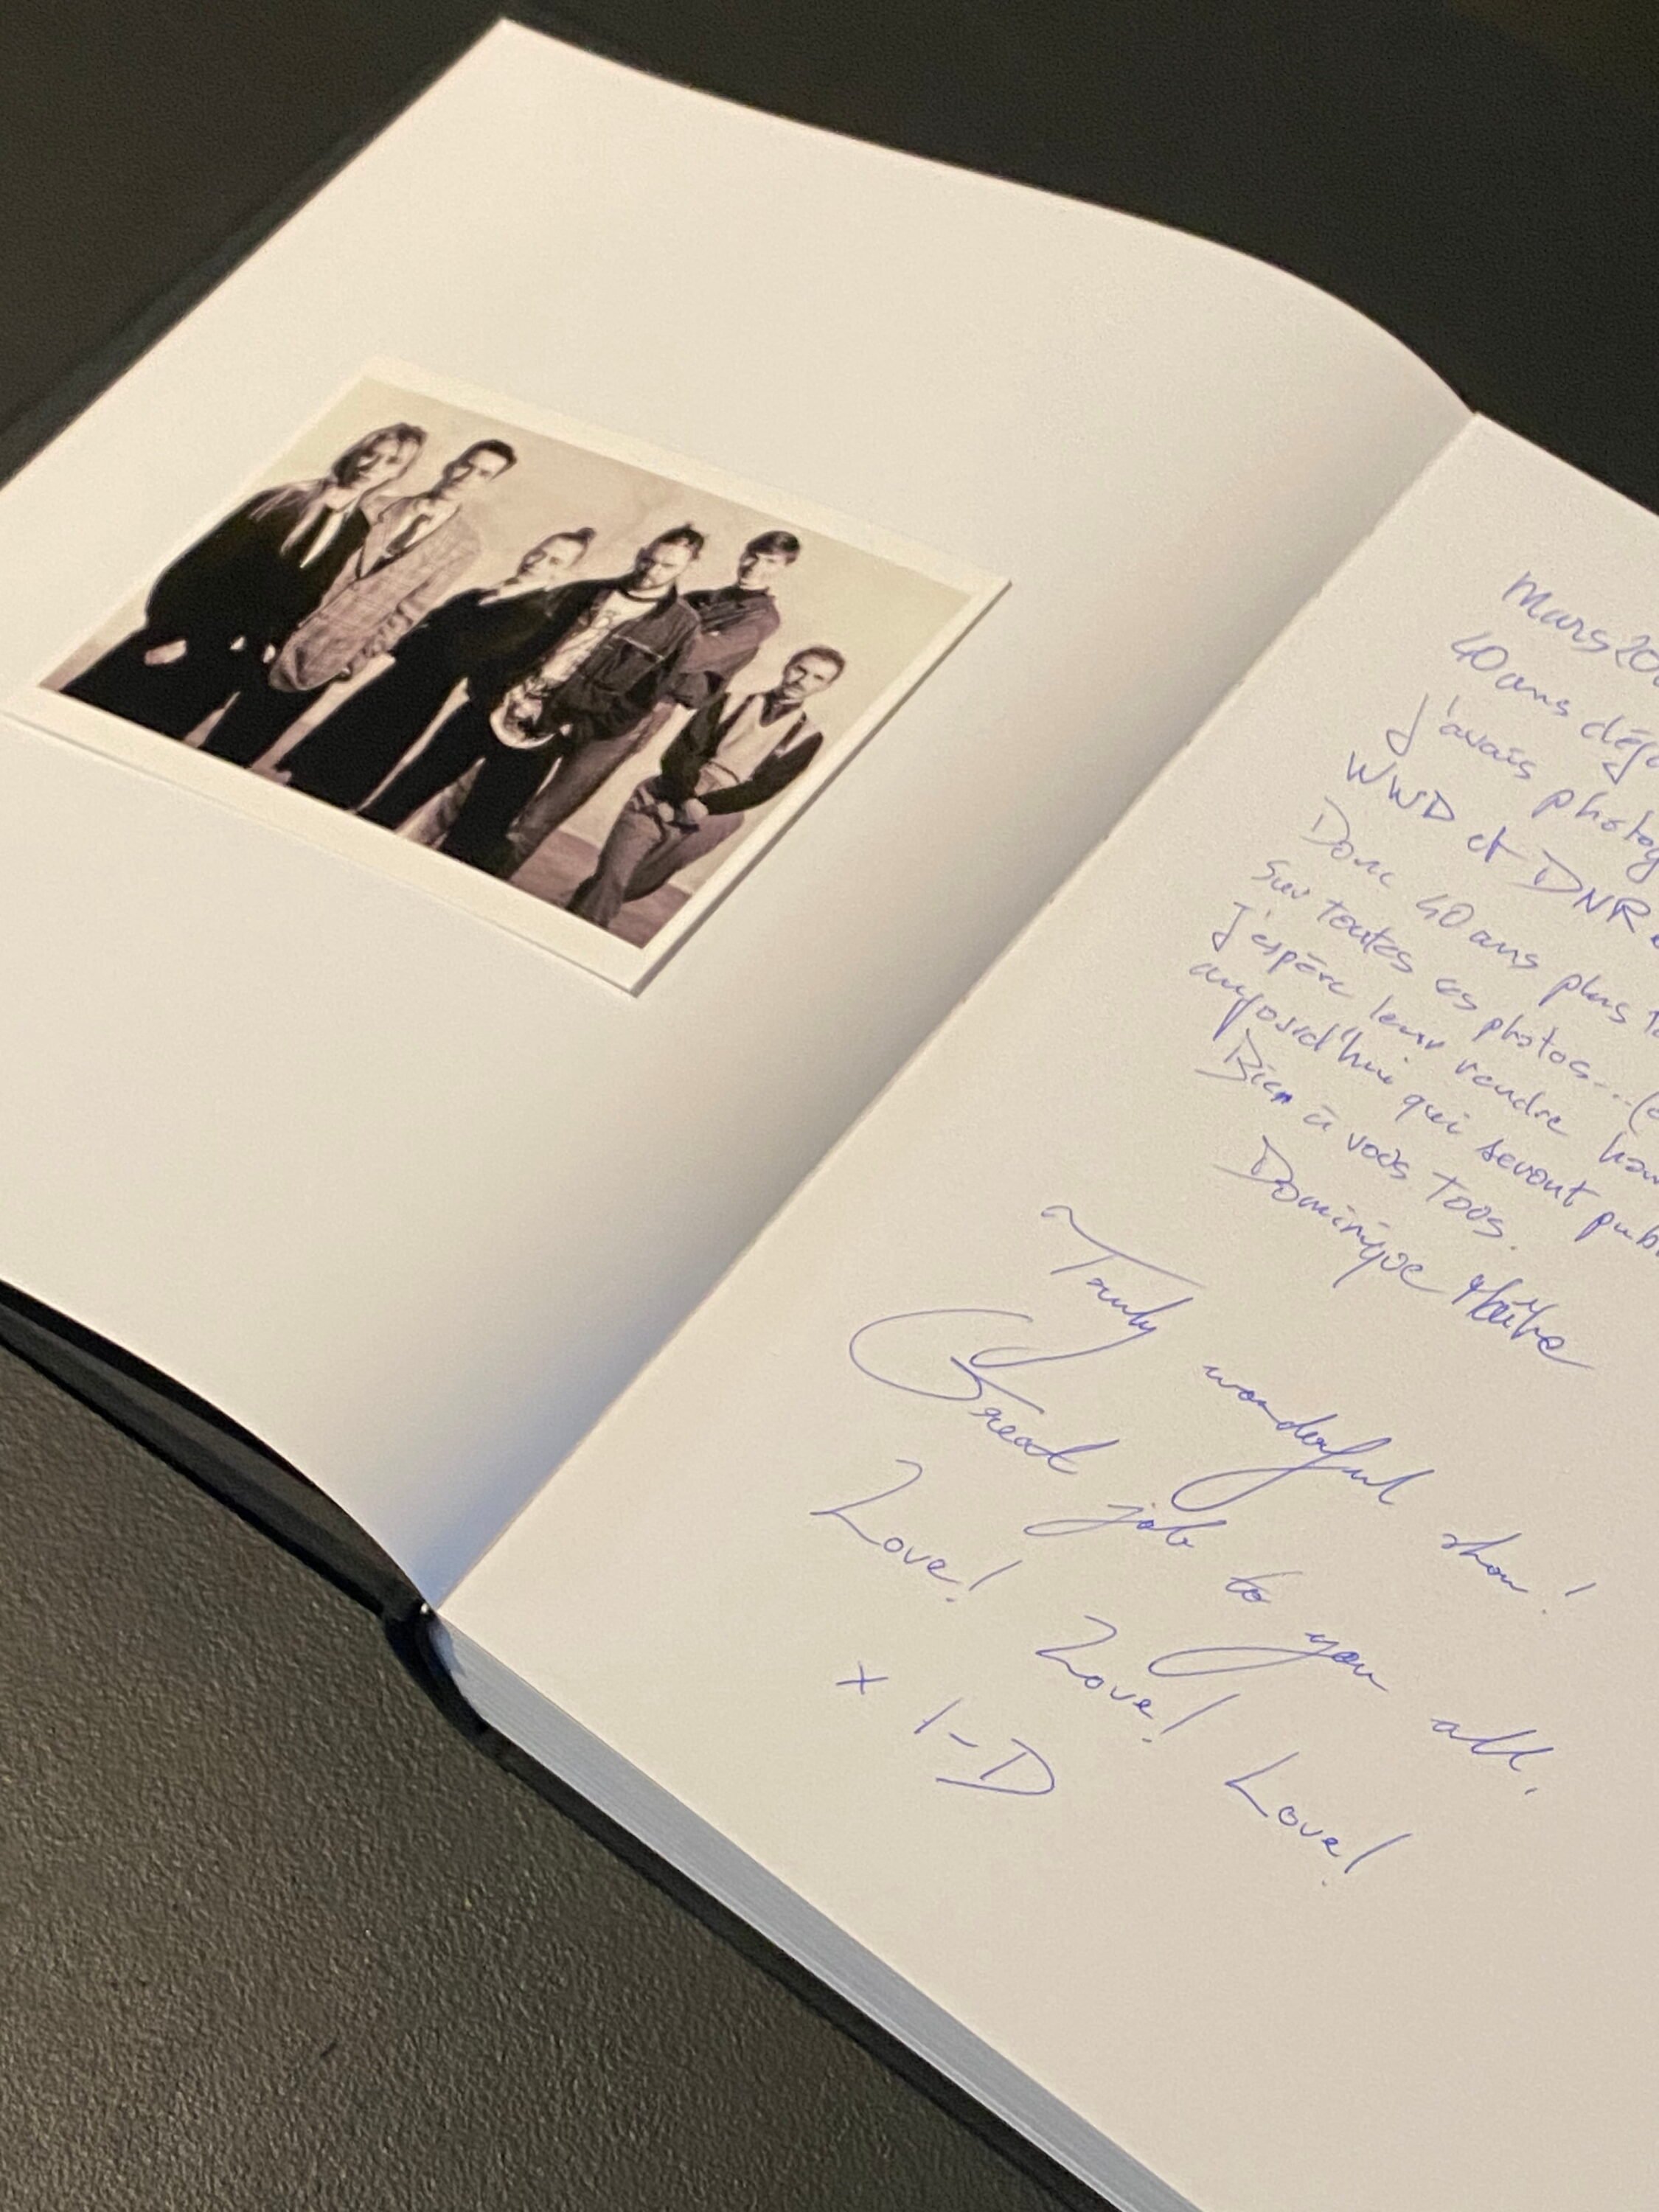 Mars 20
40 ans déjà
J'avais photog
WWD et DNR
Donc 40 ans plus ta
sur toutes ces photos...(
J'espère leur rendre hom
aujourd'hui qui seront pub
Bien à vous tous.
Dominique Maître
~
Truly wonderful show!
Great job to you all.
Love! Love! Love!
x I-D